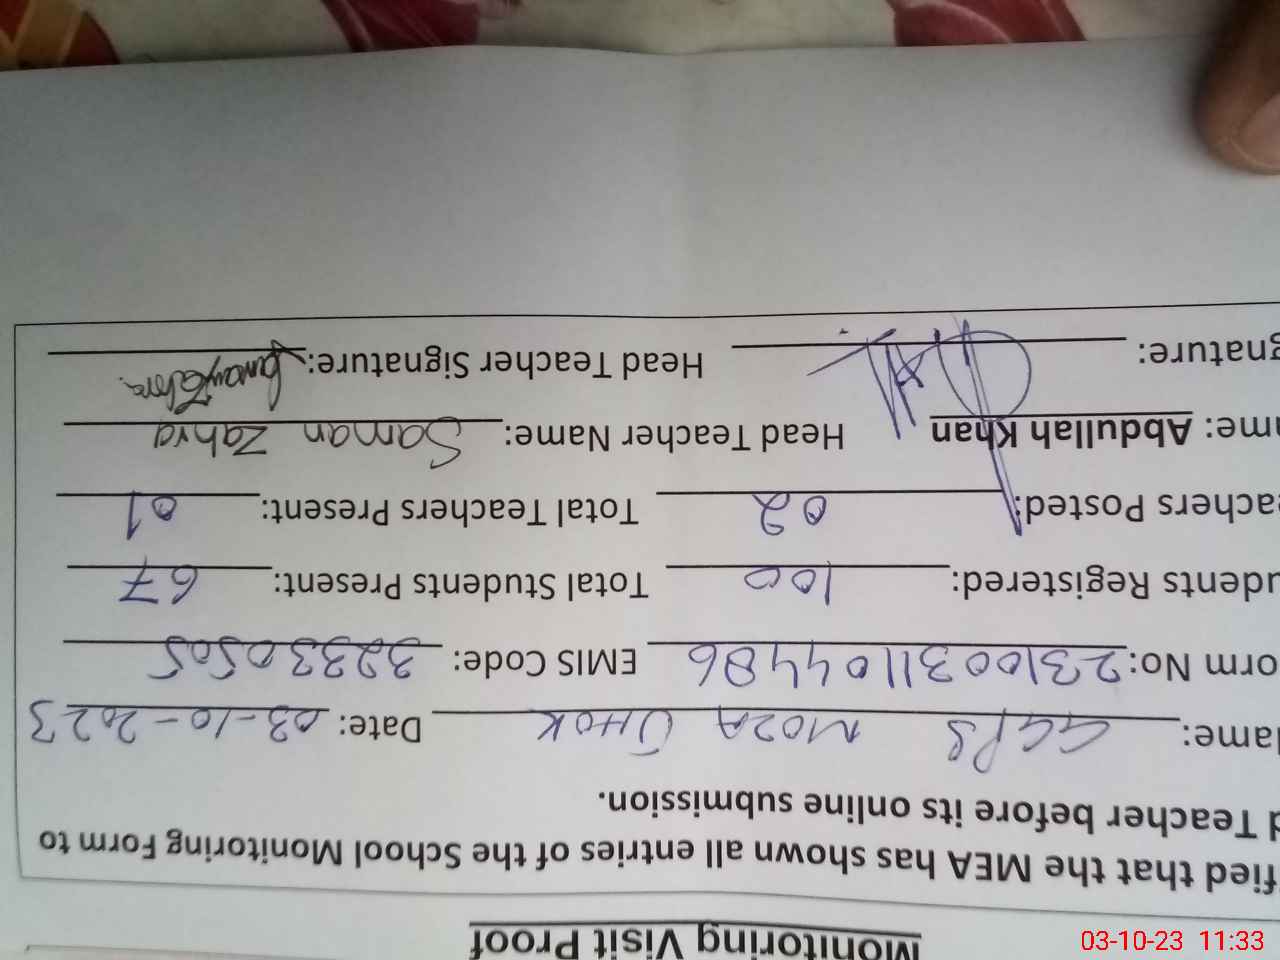 Monitoring Visit Proof
fied that the MEA has shown all entries of the School Monitoring Form to
d Teacher before its online submission.
lame: GGPS MOZA Date: 03-10-2023
orm No: 2310031104486 EMIS Code: 32330505
udents Registered: 100 Total Students Present: 67
achers Posted: 02 Total Teachers Present: 01
me: Abdullah Khan Head Teacher Name: Saman Zahra
gnature: Head Teacher Signature:
03-10-23 11:33